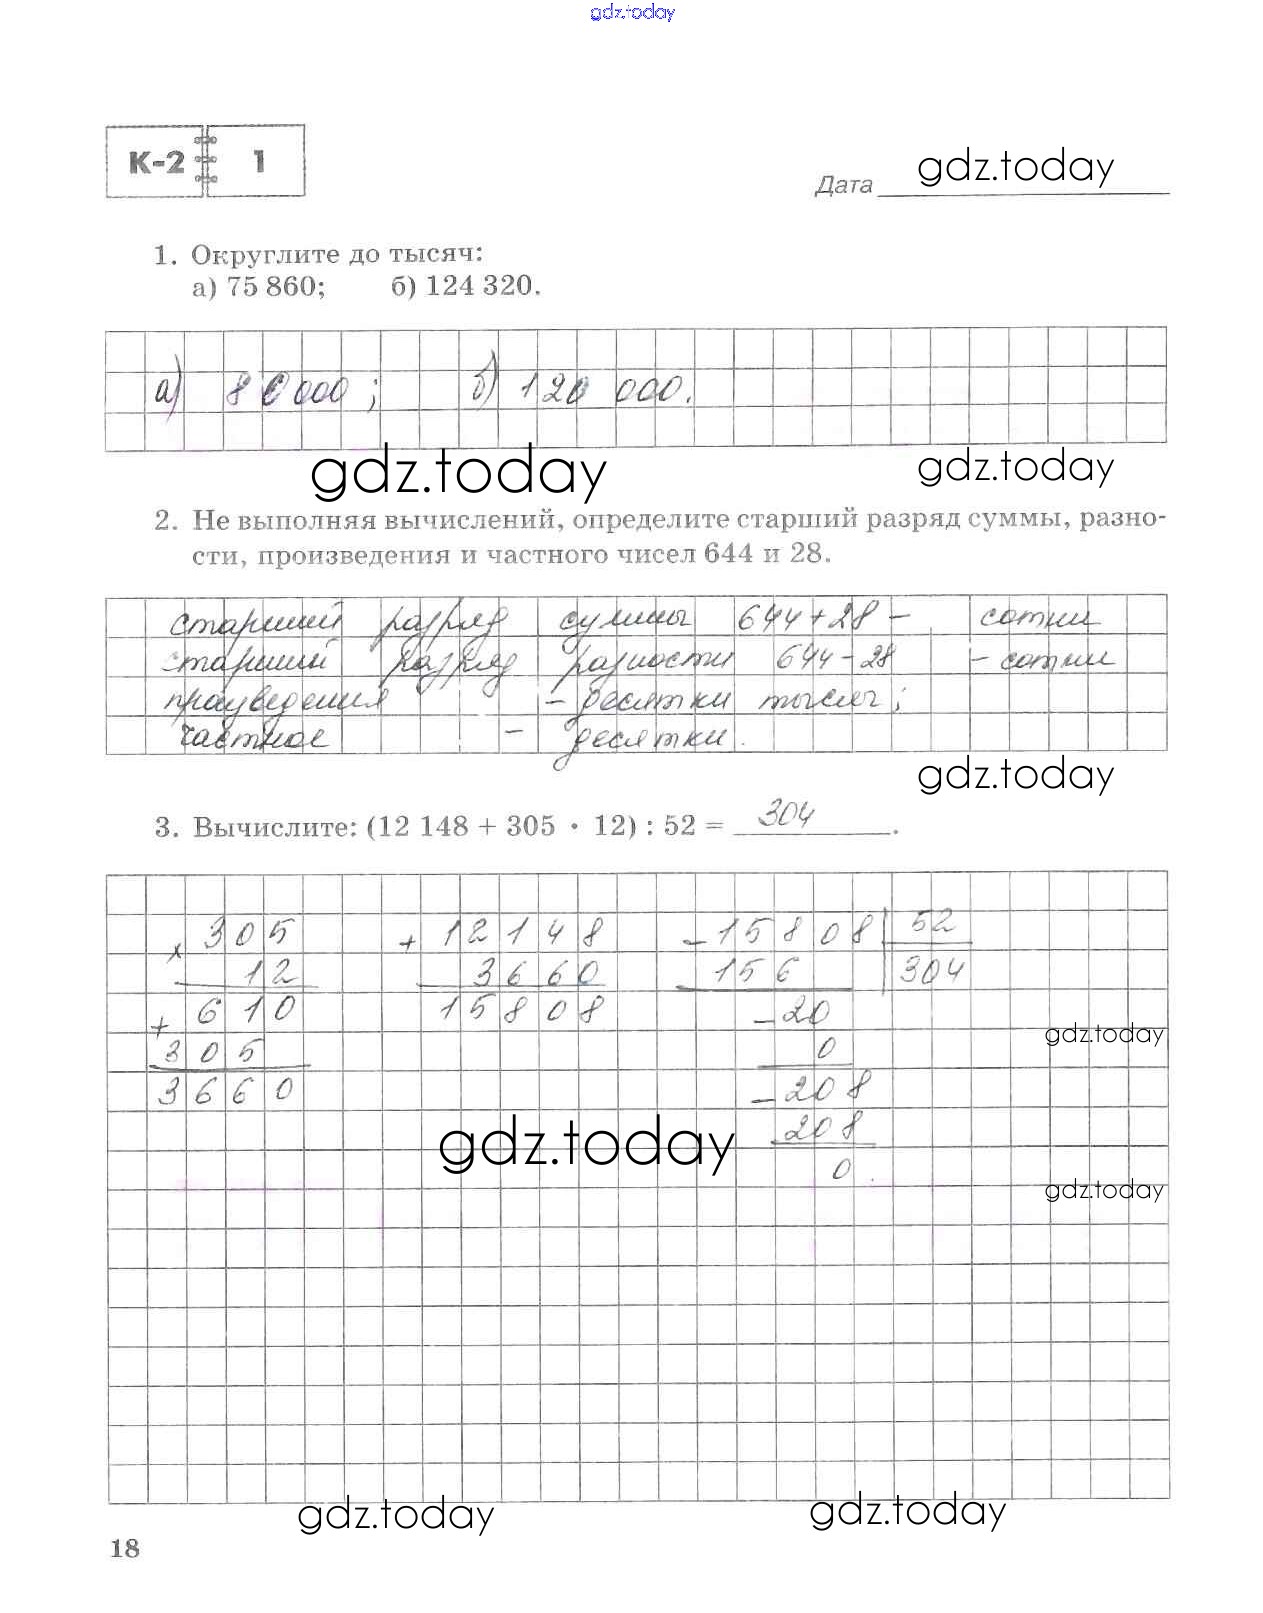 gdz.today
К-2 1
gdz.today
Дата
1. Округлите до тысяч:
а) 75 860; б) 124 320.
а) 80 000; б) 120 000.
gdz.today gdz.today
2. Не выполняя вычислений, определите старший разряд суммы, разно-
сти, произведения и частного чисел 644 и 28.
старший разряд суммы 644+28 - сотни
старший разряд разности 644-28 - сотни
произведения - десятки тысячи;
частное - десятки.
gdz.today
3. Вычислите: (12 148 + 305 · 12) : 52 = 304.
× 305 + 12148 - 15808 52
12 3660 156 304
+ 610 15808 - 20
gdz.today
305 0
3660 - 208
gdz.today 208
0
gdz.today
gdz.today gdz.today
18